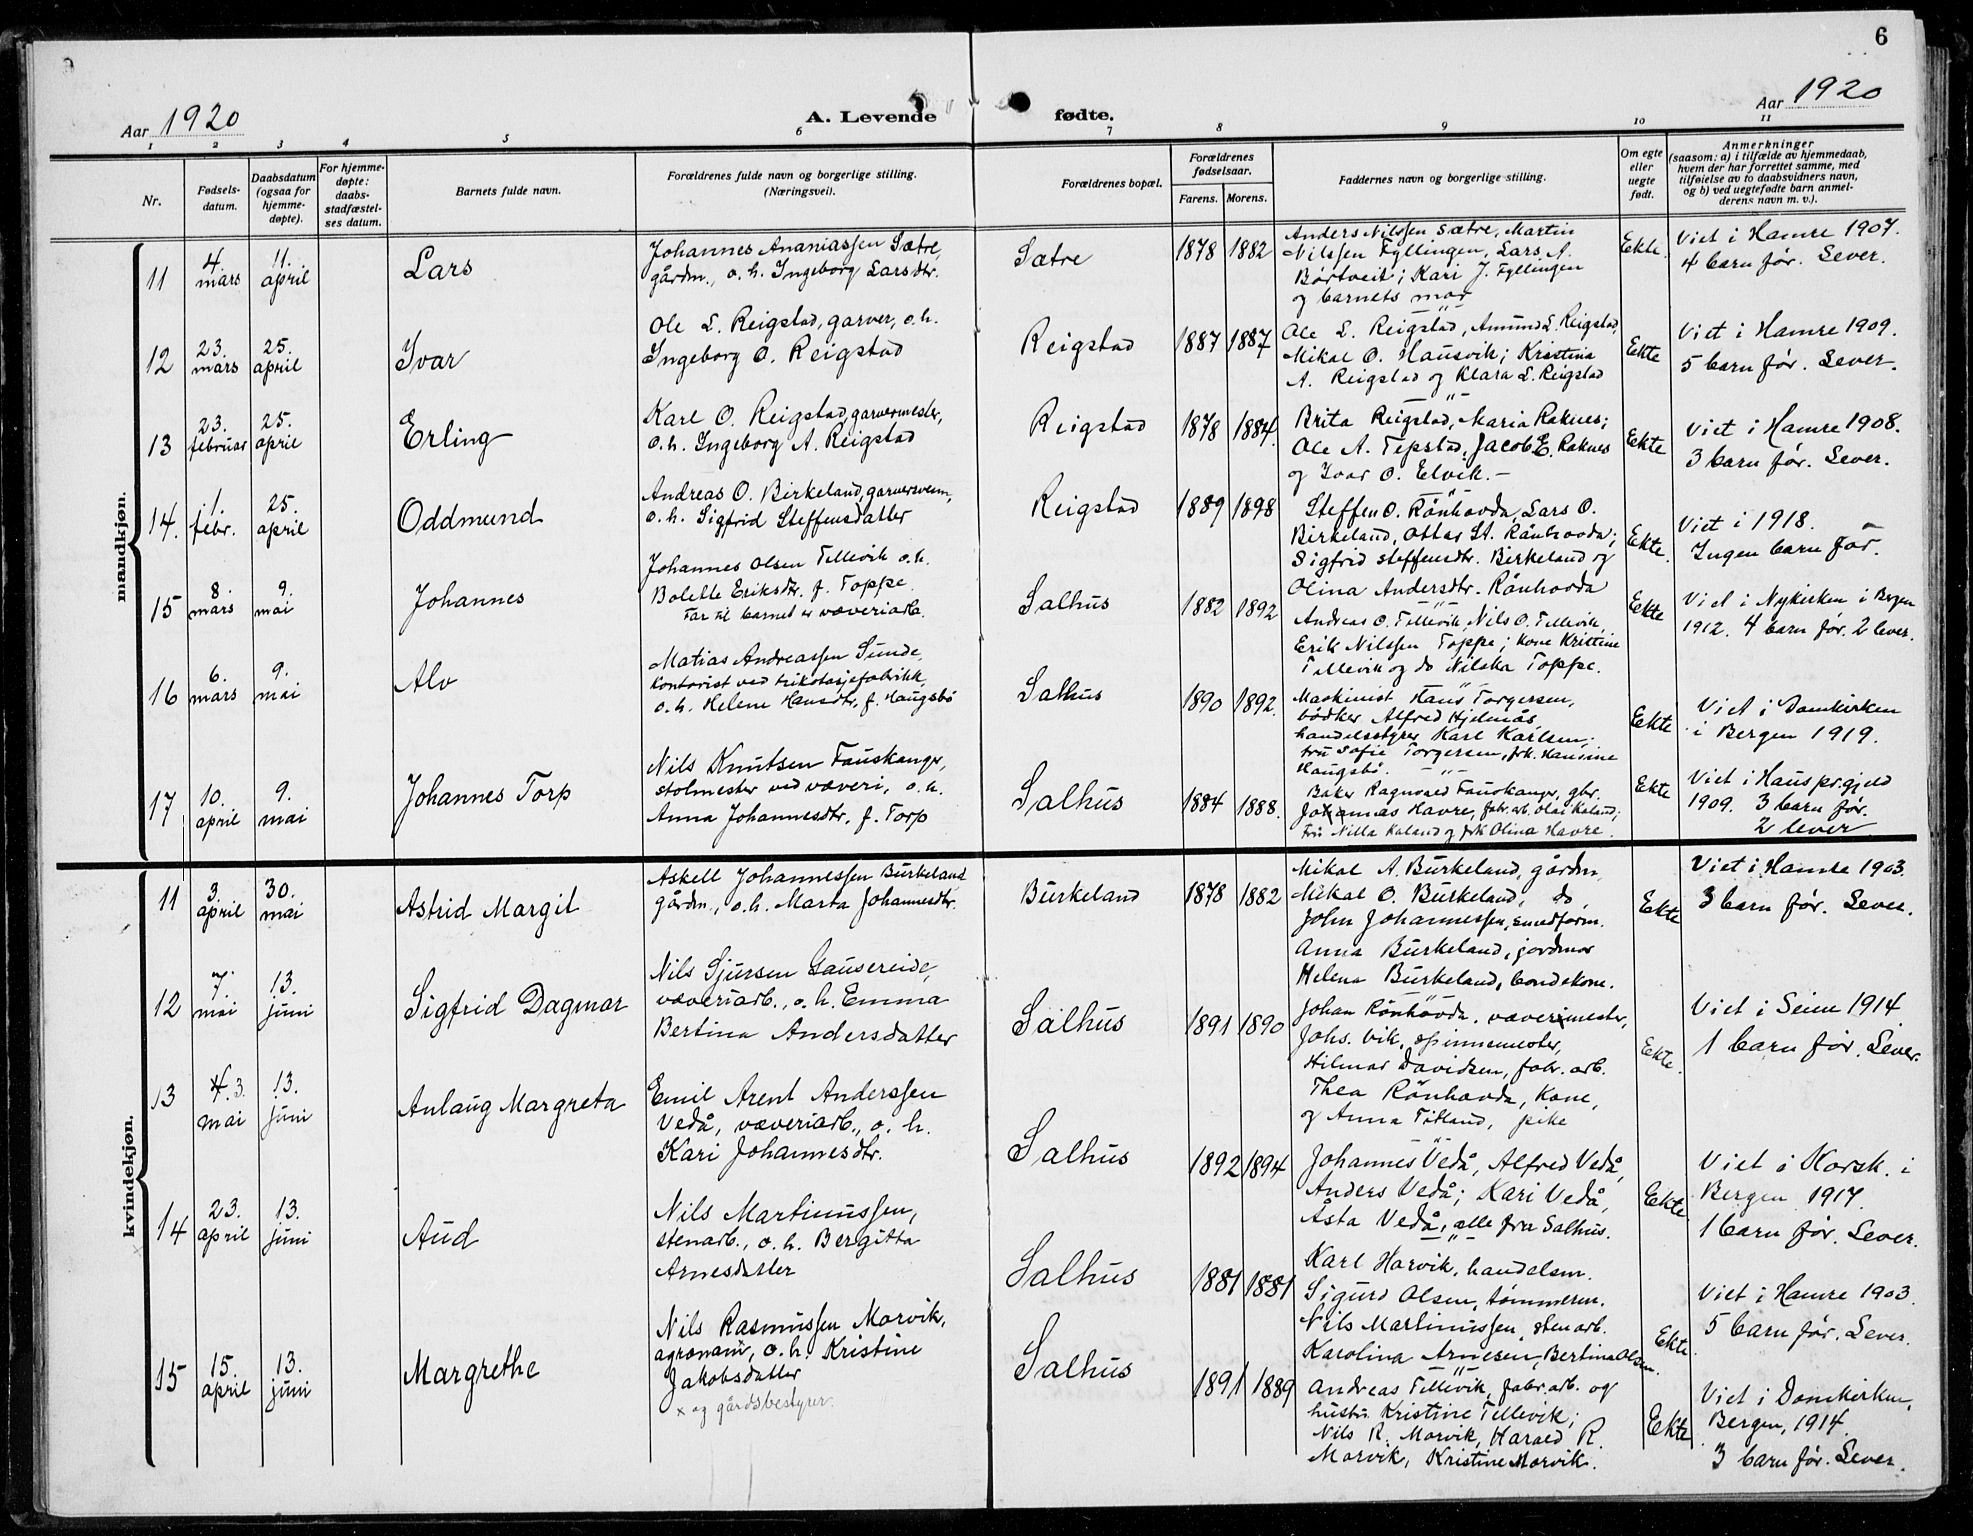 6
Aar 1920
A. Levende
fødte.
Aar 1920
1 2 3 4 5 6 7 8 9 10 11
Nr.
Fødsels-
datum.
Daabsdatum
(ogsaa for
hjemme-
døpte).
For hjemme-
døpte:
daabs-
stadfæstel-
ses datum.
Barnets fulde navn.
Forældrenes fulde navn og borgerlige stilling.
(Næringsvei).
Forældrenes bopæl.
Forældrenes
fødselsaar.
Farens. Morens.
Faddernes navn og borgerlige stilling.
Om egte
eller
uegte
født.
Anmerkninger
(saasom: a) i tilfælde av hjemmedaab,
hvem der har forrettet samme, med
tilføielse av to daabsvidners navn,
og b) ved uegtefødte barn anmel-
derens navn m. v.).
mandkjøn.
11
4
mars
11.
april
Lars
Johannes Ananiassen Sætre,
gårdm., o. h. Ingeborg Larsdtr.
Sætre
1878 1882
Anders Nilssen Sætre, Martin
Nilssen Fyllingen, Lars A.
Børtveit; Kari J. Fyllingen
og barnets mor
Ekte.
Viet i Hamre 1907.
4 barn før. Lever.
12
23.
mars
25.
april
Ivar
Ole L. Reigstad, garver, o. h.
Ingeborg O. Reigstad
Reigstad
1887 1887
Ole L. Reigstad, Amund L. Reigstad,
Mikal O. Hausvik; Kristina
A. Reigstad og Klara L. Reigstad
Ekte
Viet i Hamre 1909.
5 barn før. Lever.
13
23.
februar
25.
april
Erling
Karl O. Reigstad, garvermester,
o. h. Ingeborg A. Reigstad
Reigstad
1878 1884.
Brita Reigstad, Maria Raknes;
Ole A. Tepstad, Jacob E. Raknes
og Ivar O. Elvik. -
Ekte
Viet i Hamre 1908.
3 barn før. Lever.
14.
1.
febr.
25.
april
Oddmund
Andreas O. Birkeland, garversvenn,
o. h. Sigfrid Steffensdatter
Reigstad
1889 1898
Steffen O. Rönhovda, Lars O.
Birkeland, Ottar St. Rönhovda;
Sigfrid Steffensdtr. Birkeland og
Olina Andersdtr. Rönhovda
Ekte.
Viet i 1918.
Ingen barn før.
15
8.
mars
9.
mai
Johannes
Johannes Olsen Tellevik o. h.
Bolette Eriksdtr. f. Toppe.
Far til barnet er væveriarb.
Salhus
1882 1892
Andreas O. Tellevik, Nils O. Tellevik,
Erik Nilssen Toppe; kone Kristine
Tellevik og do Nilska Toppe.
Ekte
Viet i Nykirken i Bergen
1912. 4 barn før. 2 lever.
16
6.
mars
9.
mai
Alv
Matias Andreassen Sunde,
kontorist ved trikotasjefabrikk,
o. h. Helene Hansdtr. f. Haugsbö
Salhus
1890 1892.
Maskinist Hans Torgersen,
bödker Alfred Hjelmås,
handelsstyrer Karl Karlsen;
fru Sofie Torgersen, frk. Hansine
Haugsbö.
Ekte
Viet i Domkirken
i Bergen 1919.
17
10.
april
9.
mai
Johannes Torp
Nils Knutsen Fauskanger,
stolmester ved væveri, o. h.
Anna Johannesdtr. f. Torp
Salhus
1884 1888.
Baker Ragnvald Fauskanger, gbr.
Johannes Havre, fabr. arb. Olai Kaland;
Fru Nilla Kaland og frk Olina Havre.
Ekte
Viet i Haus prgjeld
1909. 3 barn før.
2 lever
kvindekjøn.
11
3.
april
30.
mai
Astrid Margit
Askell Johannessen Burkeland
gårdm., o. h. Marta Johannesdtr.
Burkeland
1878 1882
Mikal A. Burkeland, gårdm,
Mikal O. Burkeland, do,
John Johannessen, smedform.
Anna Burkeland, jordmor
Helena Burkeland, bondekone.
Ekte
Viet i Hamre 1903.
3 barn før. Lever.
12
7.
mai
13.
juni
Sigfrid Dagmar
Nils Sjursen Gausereide,
væveriarb., o. h. Emma
Bertina Andersdatter
Salhus
1891 1890
Johan Rönhovda, vævermester,
Johs. Vik, spinnemester,
Hilmar Davidsen, fabr. arb.
Thea Rönhovda, kone,
og Anna Titland, pike
Ekte.
Viet i Seim 1914
1 barn før. Lever.
13
4. 3.
mai
13.
juni
Anlaug Margreta
Emil Arent Anderssen
Vedå, væveriarb., o. h.
Kari Johannesdtr.
Salhus
1892 1894
Johannes Vedå, Alfred Vedå,
Anders Vedå; Kari Vedå,
Asta Vedå, alle fra Salhus.
Ekte
Viet i Korsk. i
Bergen 1917.
1 barn før. Lever.
14
23.
april
13.
juni
Aud
Nils Martinussen,
stenarb., o. h. Bergitta
Arnesdatter
Salhus
1881 1881
Karl Harvik, handelsm.
Sigurd Olsen, tømmerm.
Nils Martinussen, stenarb.
Karolina Arnesen, Bertina Olsen.
Ekte
Viet i Hamre 1903.
5 barn før. Lever.
15
15.
april
13.
juni
Margrethe
Nils Rasmussen Morvik,
agronom, o. h. Kristine
Jakobsdatter
x og gårdsbestyrer.
Salhus
1891 1889
Andreas Tellevik, fabr. arb. og
hustru Kristine Tellevik;
Nils R. Morvik, Harald R.
Morvik, Kristine Morvik.
Ekte
Viet i Domkirken,
Bergen, 1914.
3 barn før. Lever.